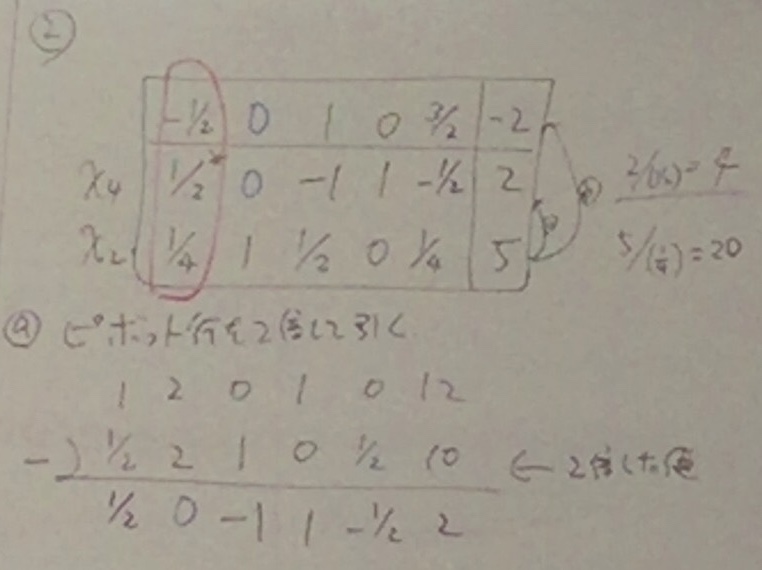 ②
-1/2 0 1 0 3/2 -2
x4 1/2 0 -1 1 -1/2 2 2/(1/2)=4
x2 1/4 1 1/2 0 1/4 5 5/(1/4)=20
ⓐ ピボット行を2倍して引く
1 2 0 1 0 12
-) 1/2 2 1 0 1/2 10 ← 2倍した
1/2 0 -1 1 -1/2 2